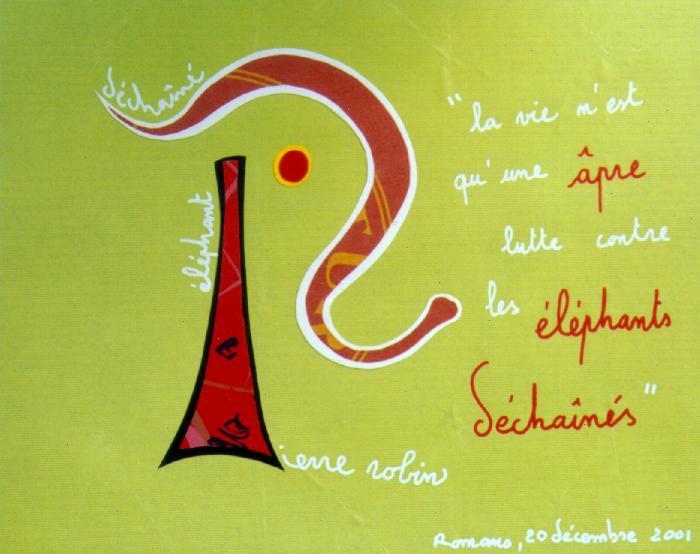 déchaîné
éléphant
"la vie n'est
qu'une âpre
lutte contre
les éléphants
déchaînés"
ierre robin
Romans, 20 décembre 2001